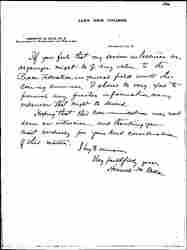 COLLEGE
If you feel that my services as lecturer or
organizer might be of any value to the
Peace Federation in general field work this
coming summer, I should be very glad to
furnish any further information or any
references that might be desired.
Hoping that this communication may not
seem an intrusion and thanking you
most cordially for your kind consideration
of this matter,
I beg to remain,
Very faithfully yours,